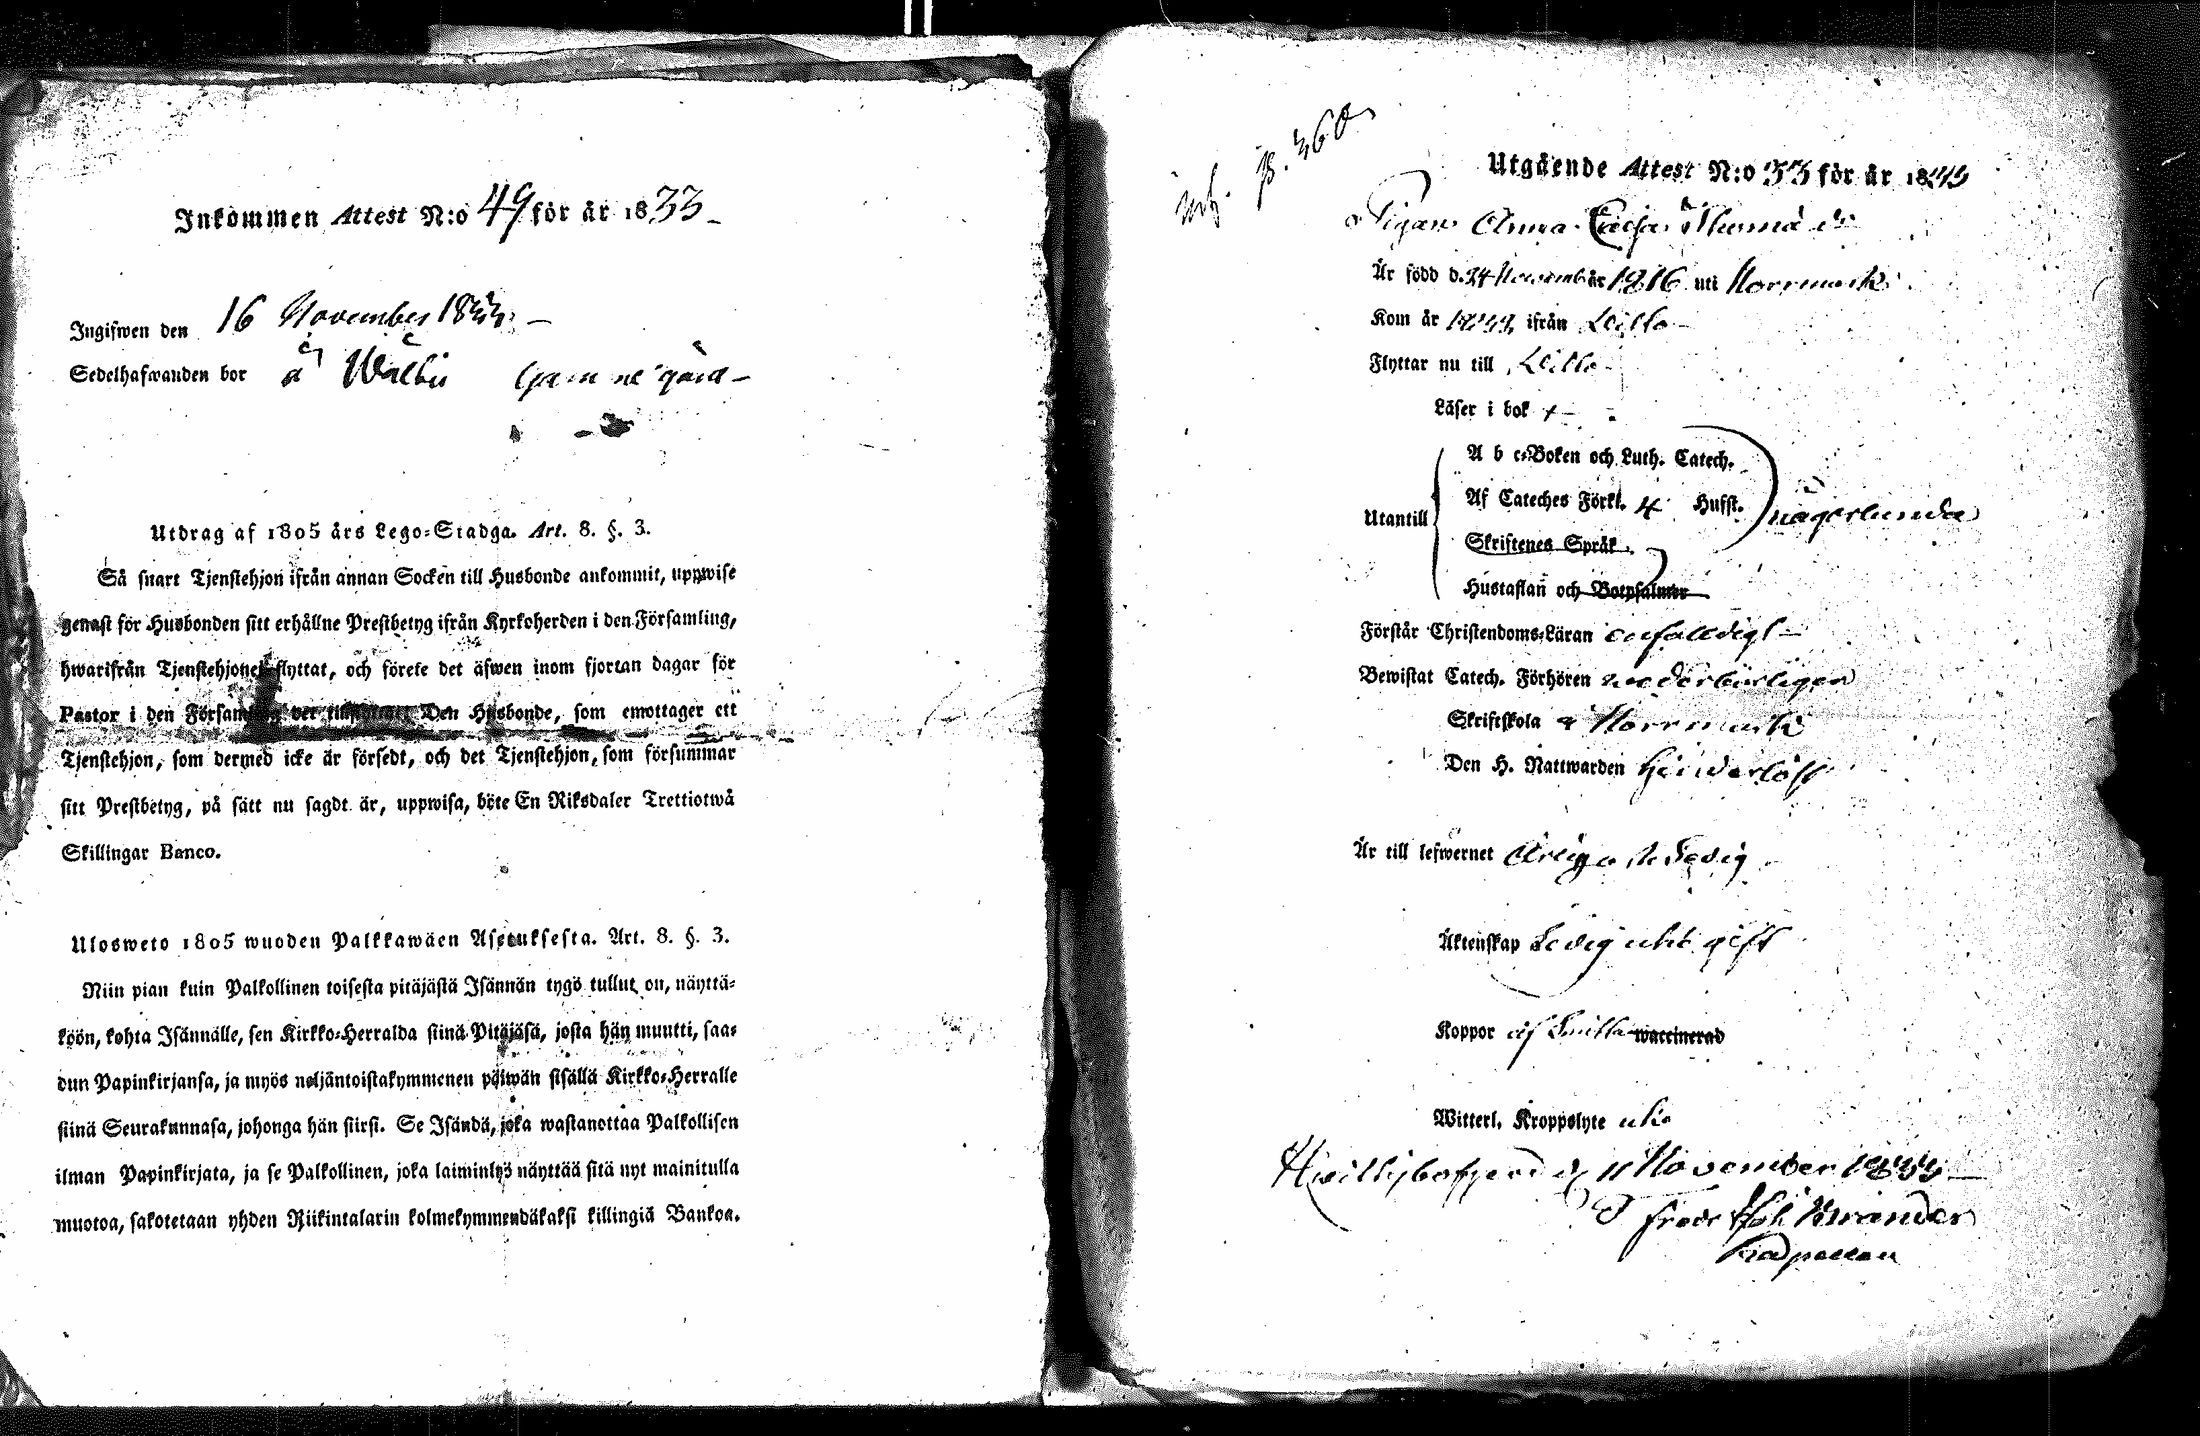 Inkommen Attest N:o 49 för år 1833
Ingifwen den 16 November 1833
Sedelhafwanden bor å Wilbis Gammelgård
Utdrag af 1805 års Lego-Stadga. Art. 8. §. 3.
Så snart Tjenstehjon ifrån annan Socken till Husbonde ankommit, uppwise
genast för Husbonden sitt erhållne Prestbetyg ifrån Kyrkoherden i den Församling,
hwarifrån Tjenstehjonet flyttat, och förete det äfwen inom fjortan dagar för
Pastor i den Församling det tillflyttat. Den Husbonde, som emottager ett
Tjenstehjon, som dermed icke är försedt, och det Tjenstehjon, som försummar
sitt Prestbetyg, på sätt nu sagdt är, uppwisa, böte En Riksdaler Trettiotwå
Skillingar Banco.
Ulosweto 1805 wuoden Palkkawäen Asetuksesta. Art. 8. §. 3.
Niin pian kuin Palkollinen toisesta pitäjästä Isännän tygö tullut on, näyttä-
köön, kohta Isännälle, sen Kirkko-Herralda siinä Pitäjäsä, josta hän muutti, saa-
dun Papinkirjansa, ja myös neljäntoistakymmenen päiwän sisällä Kirkko-Herralle
siinä Seurakunnasa, johonga hän siirsi. Se Isändä, joka wastanottaa Palkollisen
ilman Papinkirjata, ja se Palkollinen, joka laiminlyö näyttää sitä nyt mainitulla
muotoa, sakotetaan yhden Riikintalarin kolmekymmendäkaksi killingiä Bankoa.
inf. p. 360
Utgående Attest N:o 33 för år 1833
Pigan Anna Caisa Thomä dr
Är född d. 24 November 1816 uti Norrmark
Kom år 1833 ifrån Lillo
Flyttar nu till Lillo
Läser i bok +
A b c-Boken och Luth. Catech.
Af Cateches Förkl. 4 Hufst.
Utantill någorlunda
Skriftenes Språk
Hustaflan och Botpsalmer
Förstår Christendoms-Läran enfaldigt
Bewistat Catech. Förhören wederbörligen
Skriftskola i Norrmark
Den H. Nattwarden Hinderlöst
Är till lefwernet Ärlig o. sedig
Äktenskap Ledig utit gift
Koppor af Smitta waccinerad
Witterl. Kroppslyte utan
Hwittisbofjerd d. 11 November 1833
Kapellan